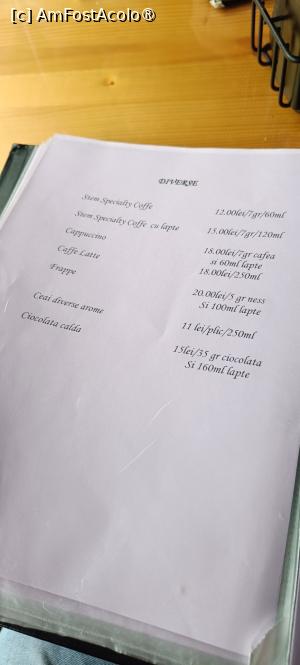 [c] AmFostAcolo®
DIVERSE
Stem Specialty Coffe 12.00lei/7gr/60ml
Stem Specialty Coffe cu lapte 15.00lei/7gr/120ml
Cappuccino 18.00lei/7gr cafea
si 60ml lapte
Caffe Latte 18.00lei/250ml
Frappe 20.00lei/5 gr ness
Si 100ml lapte
Ceai diverse arome 11 lei/plic/250ml
Ciocolata calda 15lei/35 gr ciocolata
Si 160ml lapte